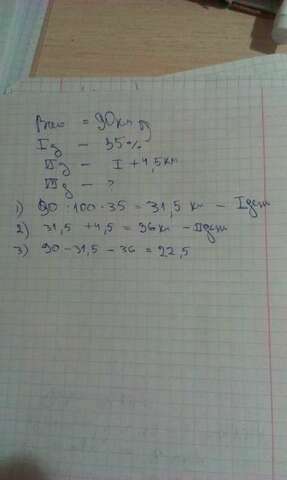 Всего = 90 км
I д - 35%
II д - I + 4,5 км
III д - ?
1) 90 · 100 · 35 = 31,5 км - I день
2) 31,5 + 4,5 = 36 км - II день
3) 90 - 31,5 - 36 = 22,5